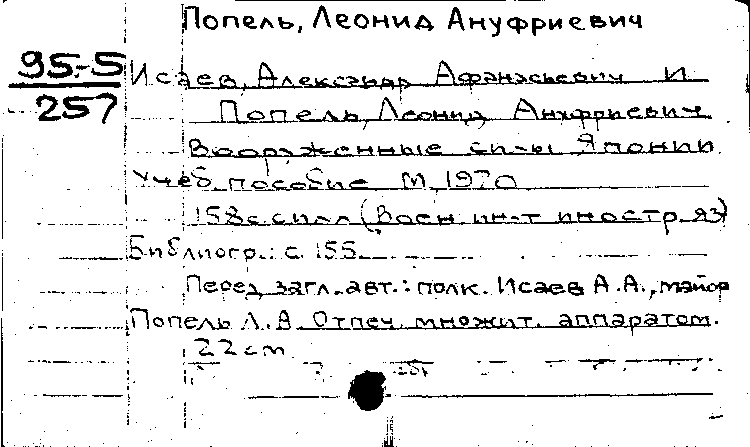 Попель, Леонид Ануфриевич
95-5
257
Исаев, Александр Афанасьевич и
Попель, Леонид Ануфриевич
Вооруженные силы Японии
Учеб. пособие М, 1970
158 с. с илл (Воен. ин-т иностр. яз)
Библиогр.: с. 155.
Перед загл. авт.: полк. Исаев А.А., майор
Попель Л. А. Отпеч. множит. аппаратом.
22 см